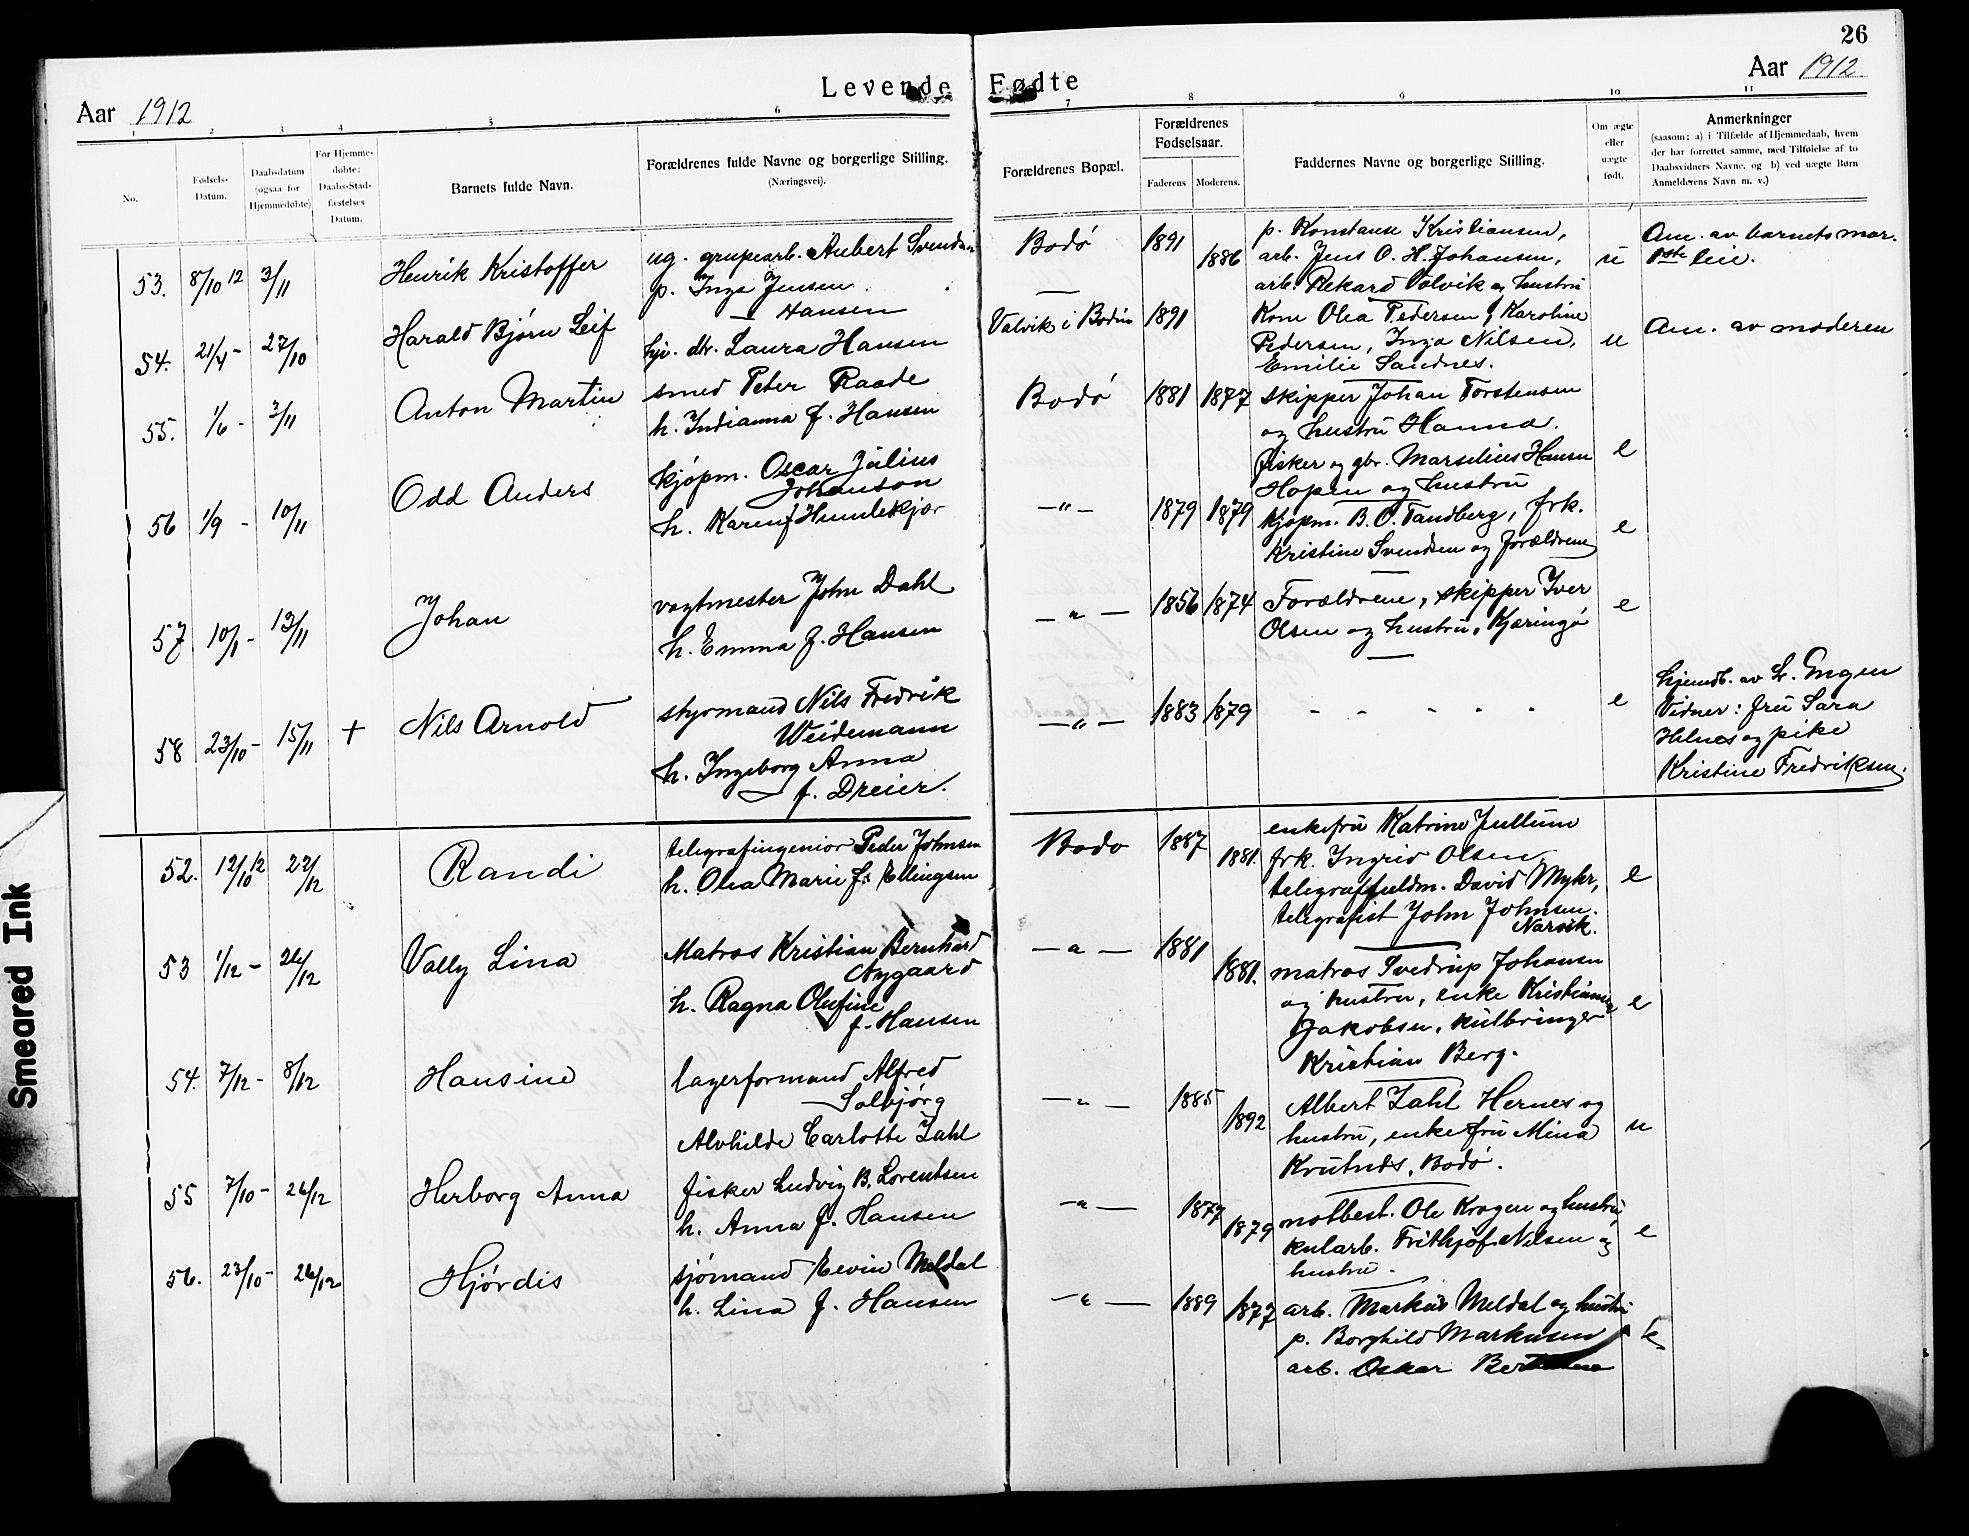 26
Levende Fødte
Aar 1912
Aar 1912.
1 2 3 4 5 6 7 8 9 10 11
No.
Fødsels-
Datum.
Daabsdatum
(ogsaa for
Hjemmedøbte)
For Hjemme-
døbte:
Daabs-Stad-
fæstelses
Datum.
Barnets fulde Navn.
Forældrenes fulde Navne og borgerlige Stilling.
(Næringsvei).
Forældrenes Bopæl.
Forældrenes
Fødselsaar.
Faderens Moderens.
Faddernes Navne og borgerlige Stilling.
Om ægte
eller
uægte
født.
Anmerkninger
(saasom: a) i Tilfælde af Hjemmedaab, hvem
der har forrettet samme, med Tilføielse af to
Daabsvidners Navne, og b) ved uægte Børn
Anmelderens Navn m. v.)
53. 8/10 12 3/11 Henrik Kristoffer
ug. grupearb. Aubert Svendsen
p. Inga Jensen
Bodó 1891 1886
p. Konstanse Kristiansen,
arb. Jens O. H. Johansen,
arb. Rekard Valvik og hustru
u
Am. av barnets mor.
1ste leie.
54. 21/4 - 27/10 Harald Bjørn Leif
Hansen
hjv. dtr. Laura Hansen
Valvik i Bodin 1891
Kone Olea Pedersen, Karoline
Pedersen, Inga Nilsen,
Emilie Sandnes.
u
Am. av moderen
55. 1/6 - 3/11 Anton Martin
smed Peter Raade
h. Indianna f. Hansen
Bodó 1881 1877
skipper Johan Torstensen
og hustru Hanna.
fisker og gbr. Marselius Hansen
Hopen og hustru
e
56 1/9 - 10/11 Odd Anders
kjópm. Oscar Julius
Johanson
h. Karen f Hundekjær
-"- 1879 1879
kjópm. B. O. Tandberg, frk.
Kristine Svendsen og forældrene
e
57 10/1 - 13/11 Johan
vagtmester John Dahl
h. Emma f. Hansen
-"- 1856 1874
Forældrene, skipper Iver
Olsen og hustru, Kjæringó
e
58 23/10 - 15/11 + Nils Arnold
styrmand Nils Fredrik
Weidemann
h. Ingeborg Anna
f. Dreier.
-"- 1883 1879
- - - - -
e
hjemdb. av Lr. Engen
Vidner: fru Sara
Helnes og pike
Kristine Fredriksen.
52. 12/10 12 22/12 Randi
telegrafingeniør Peder Johnsen
h. Olea Marie f. Ellingsen
Bodo 1887 1881.
enkefru Katrine Jullum
frk. Ingrid Olsen
telegraffuldm. David Myhr,
telegrafist John Johnsen.
Narvik.
e
53 1/12 - 26/12 Vally Lina
Matros Kristian Bernhard
Nygaard
h. Ragna Olufine
f. Hansen
-"- 1881 1881.
matros Svedrup Johansen
og hustru, enke Kristianna
Jakobsen, kulbringer
Kristian Berg.
e
54. 7/12 - 8/12 Hansine
lagerformand Alfred
Solbjórg
Alvhilde Carlotte Zahl
-"- 1885 1892
Albert Zahl Hernes og
hustru, enkefru Mina
Krutnes, Bodó.
u
55 7/10 - 26/12 Herborg Anna
fisker Ludvig B. Lorentsen
h. Anna f. Hansen
-"- 1877 1879
notbest. Ole Krogen og hustru,
kularb. Frithjof Nilsen og
hustru.
e
56. 23/10 - 26/12 Hjórdis
sjómand Eevin Meldal
h. Lina f. Hansen
-"- 1889 1877
arb. Markus Meldal og hustru
p. Borghild Markusen
arb. Oskar
Smeared Ink